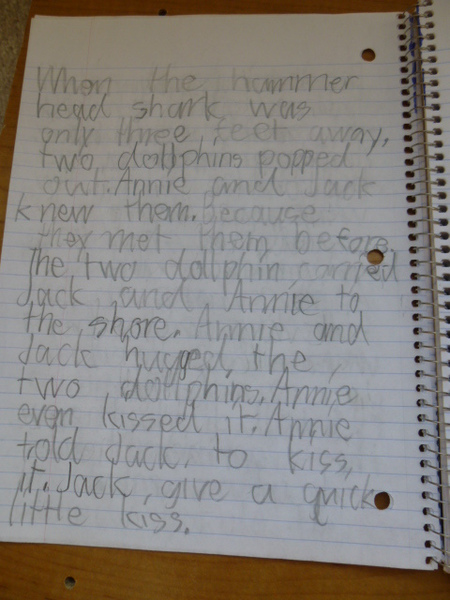 When the hammer
head shark was
only three feet away,
two dollphins popped
out. Annie and Jack
knew them. Because
they met them before.
The two dollphin carried
Jack and Annie to
the shore. Annie and
Jack hugged the
two dollphins. Annie
even kissed it. Annie
told Jack to kiss
it. Jack give a quick
little kiss.